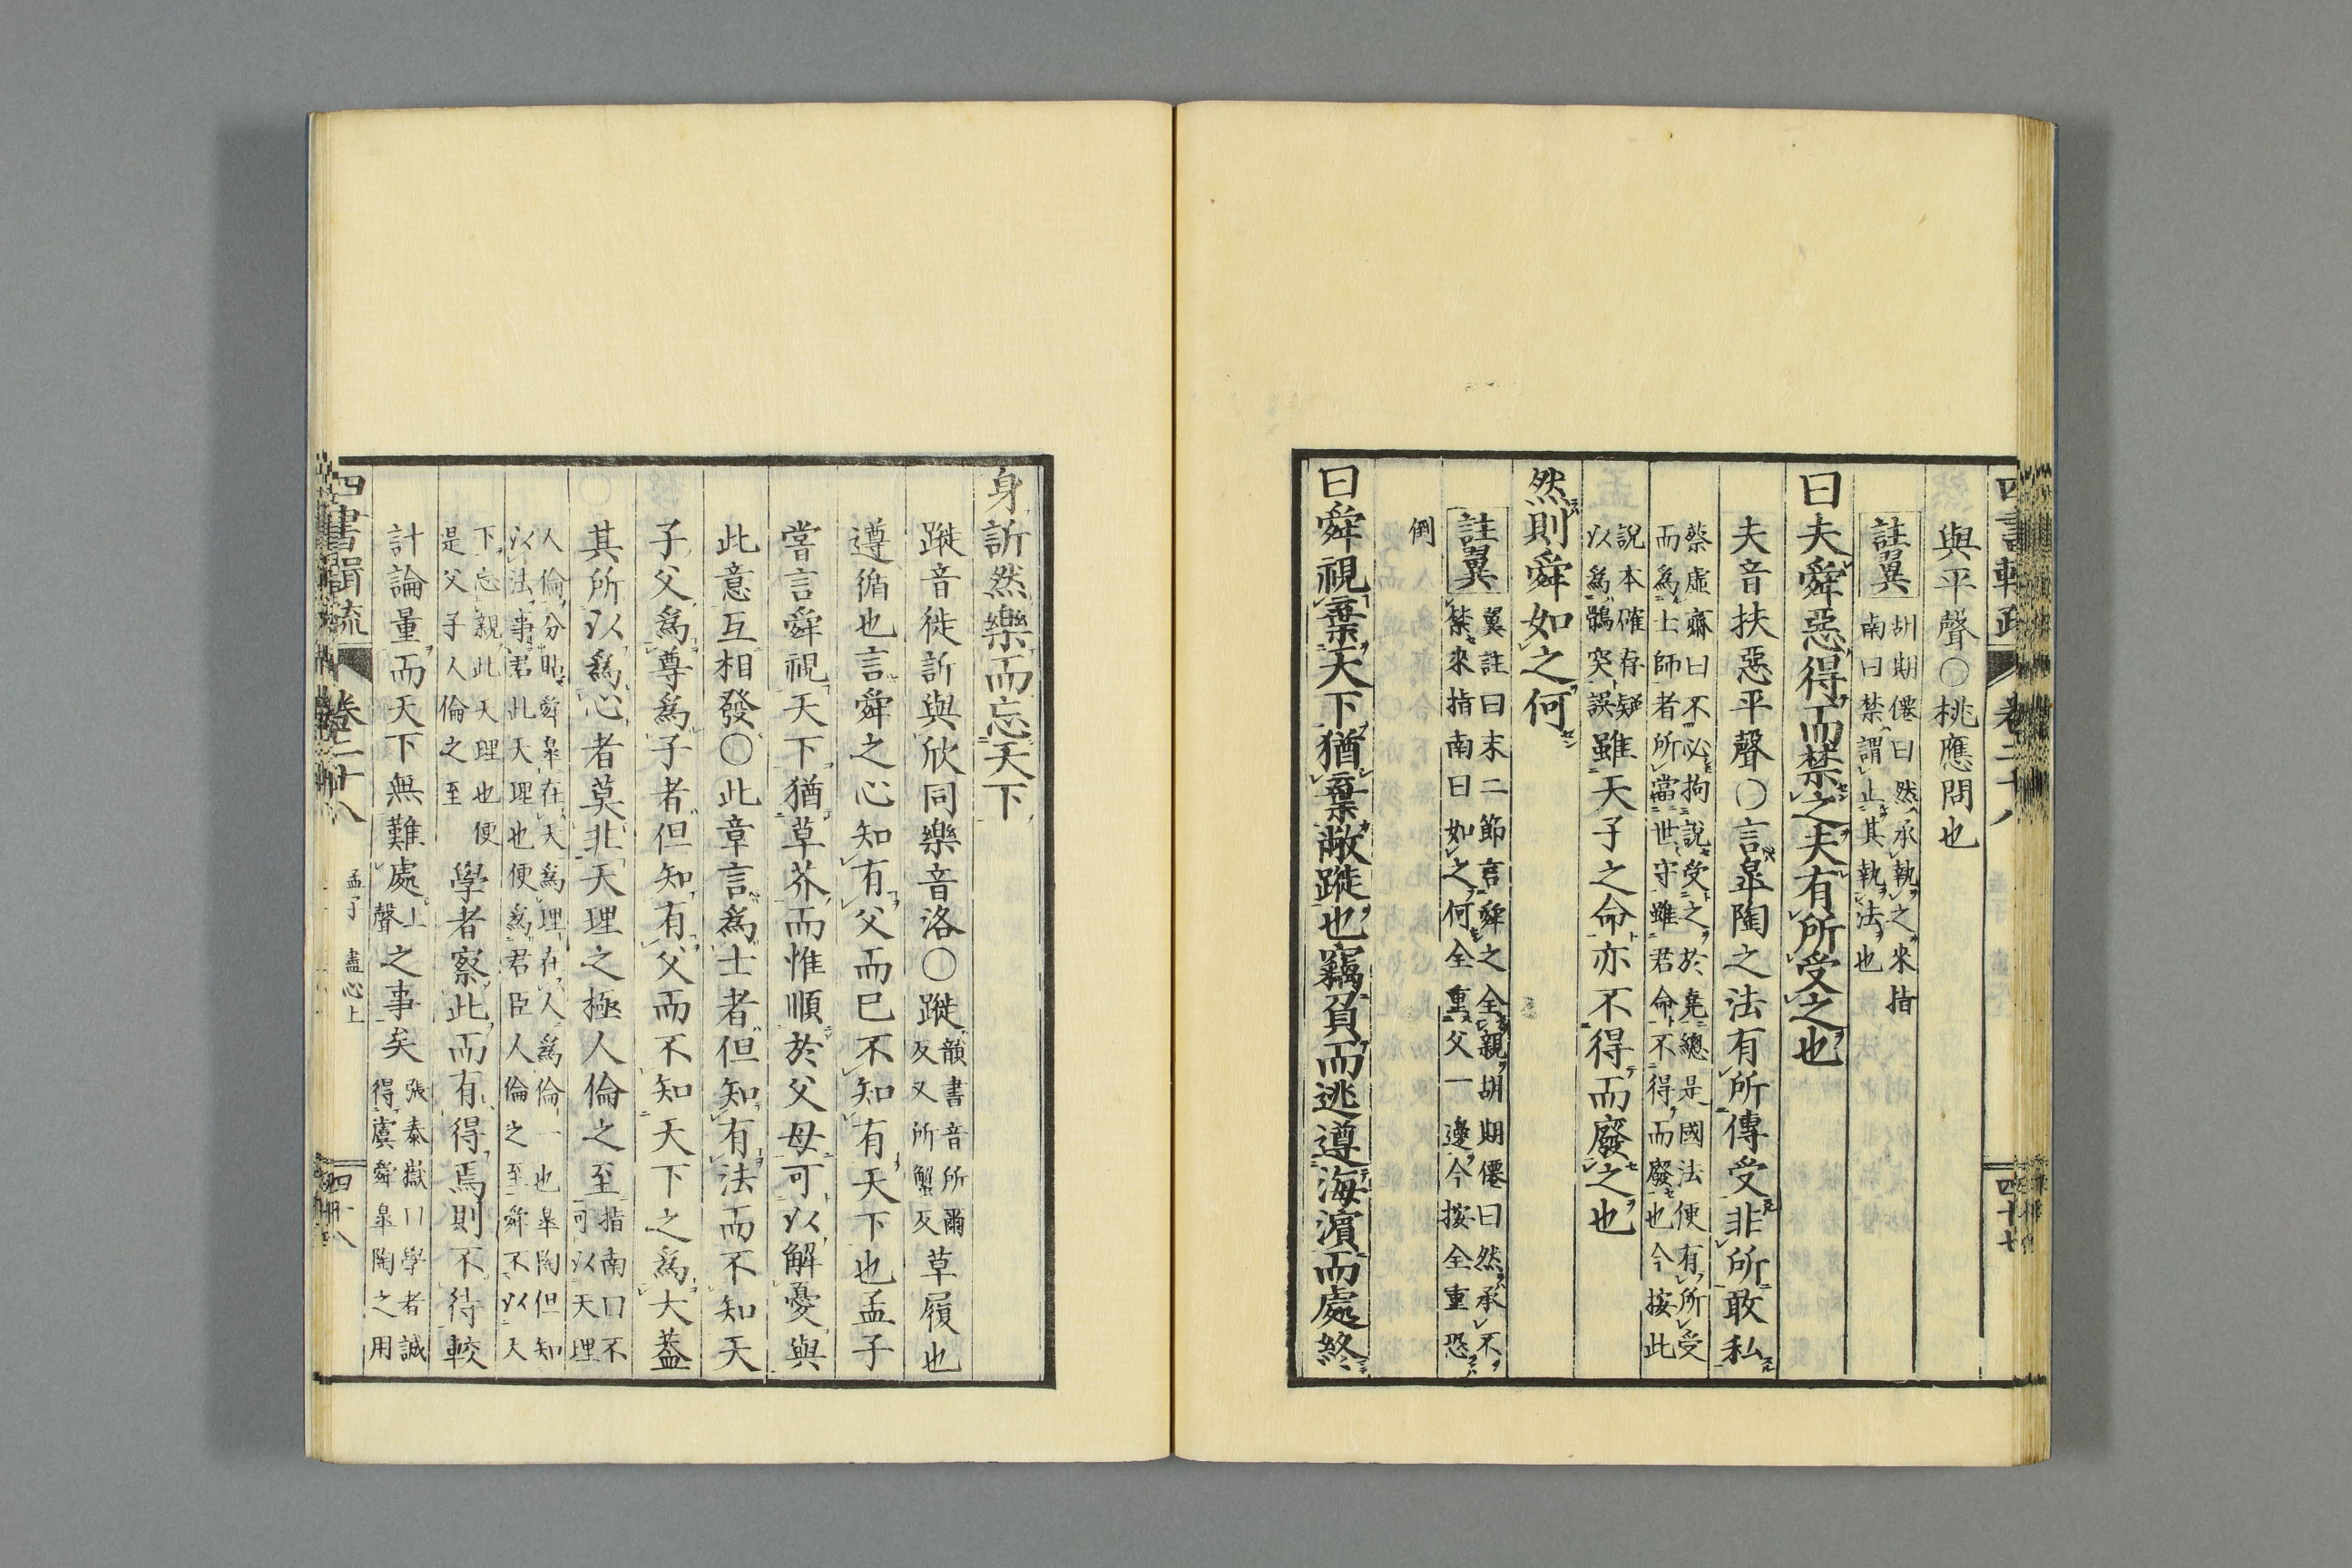 與平聲〇桃應問也
註翼
胡期僊曰然承執之來指
南曰禁謂止其執法也
曰夫舜惡得而禁之夫有所受之也
夫音扶惡平聲〇言皐陶之法有所傳受非所敢私
蔡虛齋曰不必拘說受之於堯總是國法便有所受
而爲上師者所當世守雖君命不得而廢也今按此
說本確存疑
以爲鶻突誤
雖天子之命亦不得而廢之也
然則舜如之何
註翼
翼註曰末二節言舜之全親胡期僊曰然承不
禁來指南曰如之何全重父一邊今按全重恐
倒
曰舜視棄天下猶棄敝蹝也竊負而逃遵海濵而處終
身訢然樂而忘天下
蹝音徙訢與欣同樂音洛〇蹝
韻書音所爾
反又所蟹反
草履也
遵循也言舜之心知有父而已不知有天下也孟子
嘗言舜視天下猶草芥而惟順於父母可以解憂與
此意互相發〇此章言爲士者但知有法而不知天
子父爲尊爲子者但知有父而不知天下之爲大葢
其所以爲心者莫非天理之極人倫之至
指南曰不
可以天理
人倫分貼舜皐在天爲理在人爲倫一也皐陶但知
以法事君此天理也便爲君臣人倫之至舜不以天
下忘親此天理也便
是父子人倫之至
學者察此而有得焉則不待較
計論量而天下無難處
上
聲
之事矣
張泰嶽曰學者誠
得虞舜皐陶之用
卷二十八
孟子 盡心上